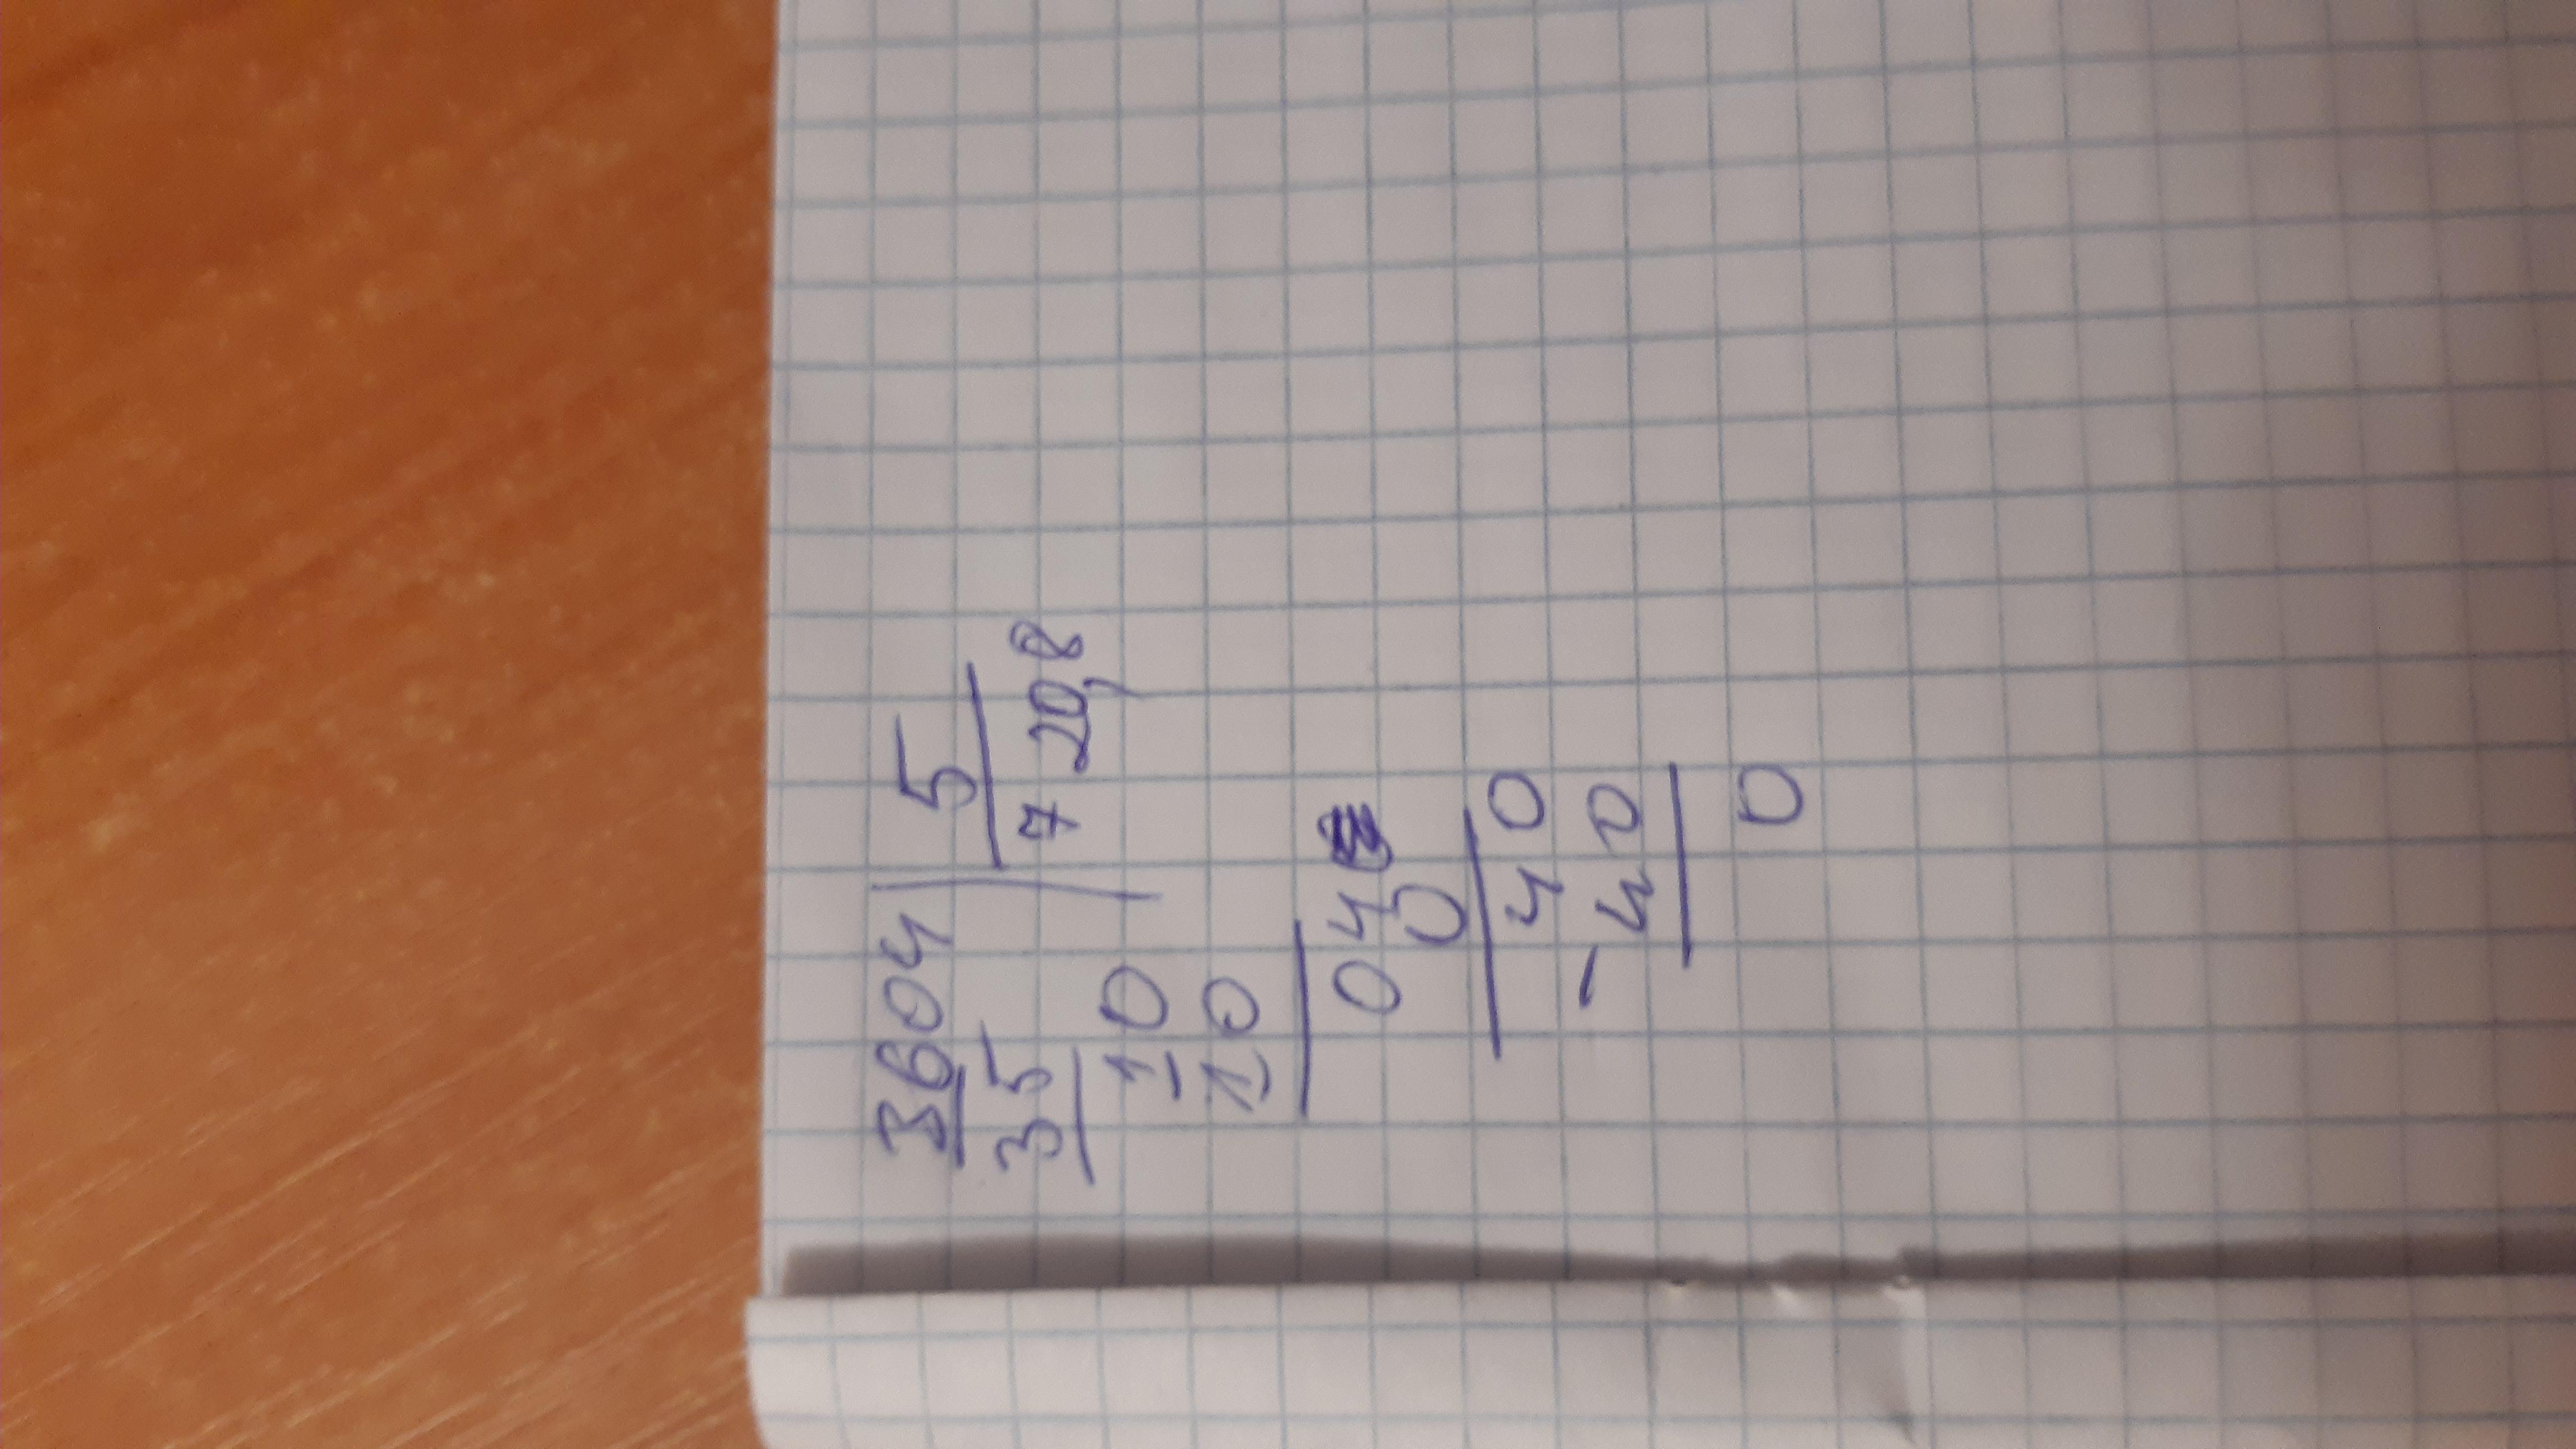 3604 5
35 720,8
10
10
04
0
40
- 40
0